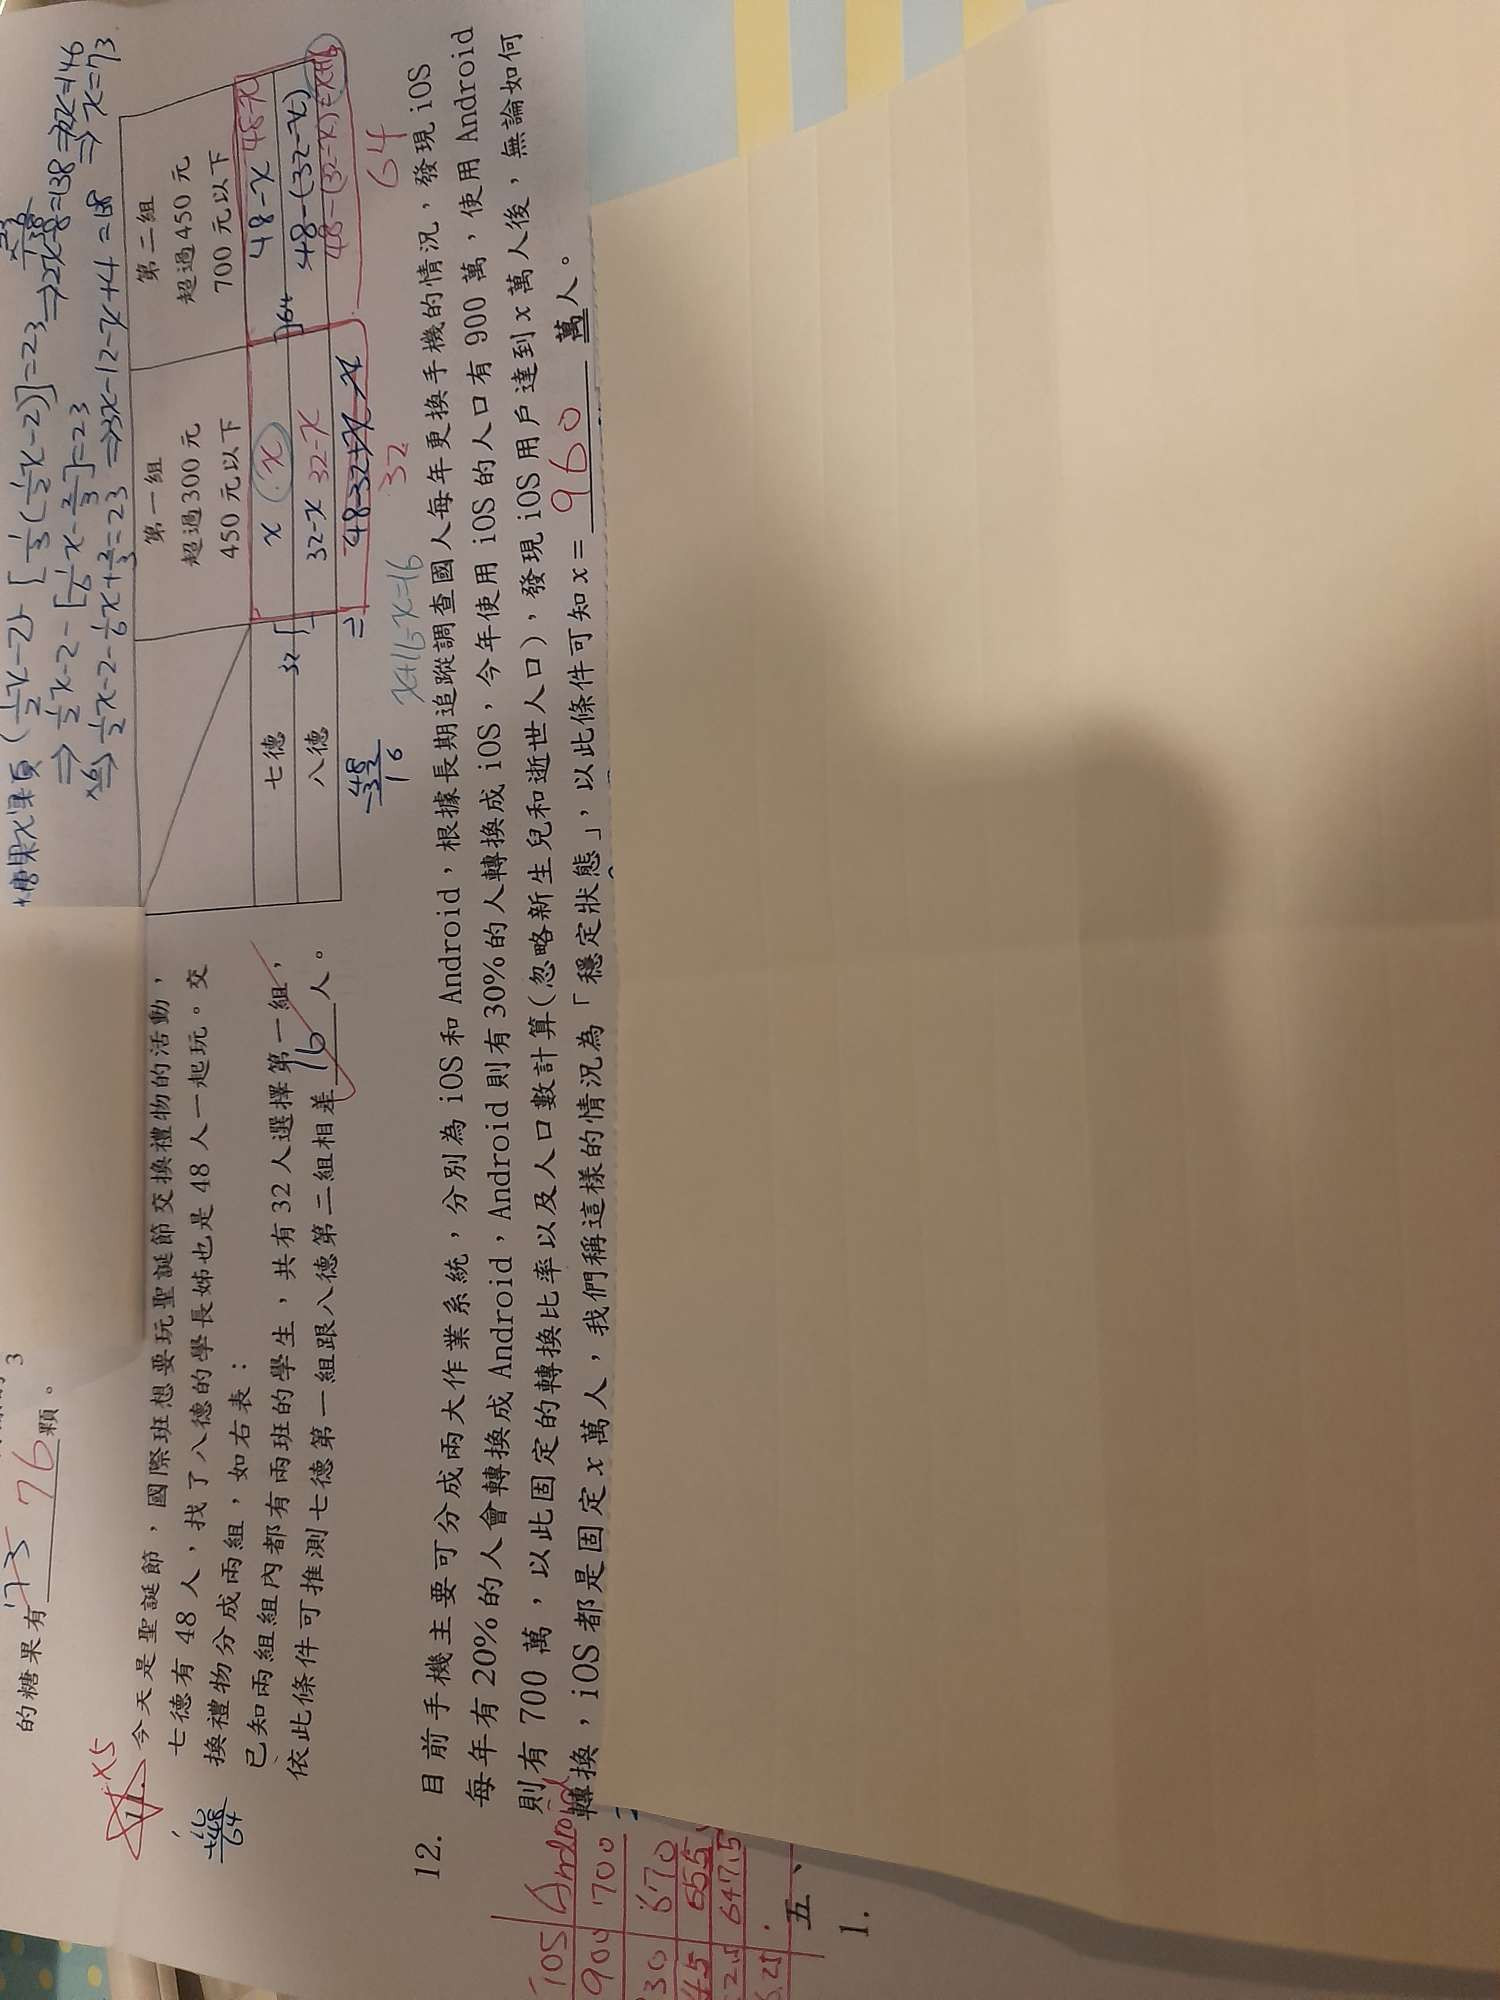 的糖果有 73 76 顆。
糖果x顆
=23 ⇒2x-8=138⇒2x=146
⇒ 1/2x-2-[1/6x-2/3]=23
⇒x=73
⇒ 1/2x-2-1/6x+2/3=23 ⇒3x-12-x+4=138
×5
11. 今天是聖誕節，國際班想要玩聖誕節交換禮物的活動，
七德有 48 人，找了八德的學長姊也是 48 人一起玩。交
換禮物分成兩組，如右表：
已知兩組組內都有兩班的學生，共有 32 人選擇第一組，
依此條件可推測七德第一組跟八德第二組相差 16 人。
第一組 第二組
超過300元 超過450元
450元以下 700元以下
七德 x x 48-x 48-x
八德 32-x 32-x 48-(32-x)
48-(32-x) x+16
32 64
x+16-x=16
12. 目前手機主要可分成兩大作業系統，分別為 iOS 和 Android，根據長期追蹤調查國人每年更換手機的情況，發現 iOS
每年有 20%的人會轉換成 Android，Android 則有 30%的人轉換成 iOS，今年使用 iOS 的人口有 900 萬，使用 Android
則有 700 萬，以此固定的轉換比率以及人口數計算(忽略新生兒和逝世人口)，發現 iOS 用戶達到 x 萬人後，無論如何
轉換，iOS 都是固定 x 萬人，我們稱這樣的情況為「穩定狀態」，以此條件可知 x = 960 萬人。
iOS Android
900 700
30 670
45 655
2.5 647.5
五、
1.